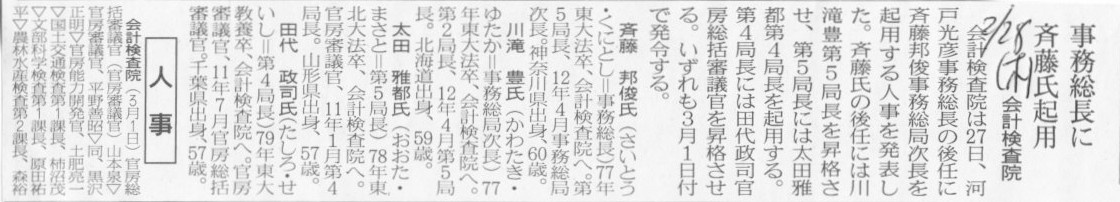 事務総長に
斉藤氏起用
会計検査院
2/28(木)
会計検査院は27日、河
戸光彦事務総長の後任に
斉藤邦俊事務総局次長を
起用する人事を発表し
た。斉藤氏の後任には川
滝豊第5局長を昇格さ
せ、第5局長には太田雅
都第4局長を起用する。
第4局長には田代政司官
房総括審議官を昇格させ
る。いずれも3月1日付
で発令する。
斉藤 邦俊氏(さいとう
・くにとし=事務総長)77年
東大法卒、会計検査院へ。第
5局長、12年4月事務総局
次長。神奈川県出身、60歳。
川滝 豊氏(かわたき・
ゆたか=事務総局次長)77
年東大法卒、会計検査院へ。
第2局長、12年4月第5局
長。北海道出身、59歳。
太田 雅都氏(おおた・
まさと=第5局長)78年東
北大法卒、会計検査院へ。
官房審議官、11年1月第4
局長。山形県出身、57歳。
田代 政司氏(たしろ・せ
いし=第4局長)79年東大
教養卒、会計検査院へ。官房
審議官、11年7月官房総括
審議官。千葉県出身、57歳。
人事
会計検査院(3月1日) 官房総
括審議官(官房審議官)山本泉▽
官房審議官、平野善昭▽同、黒沢
正明▽官房能力開発官、土肥亮一
▽国土交通検査第1課長、柿沼茂
▽文部科学検査第1課長、原田祐
平▽農林水産検査第2課長、森裕